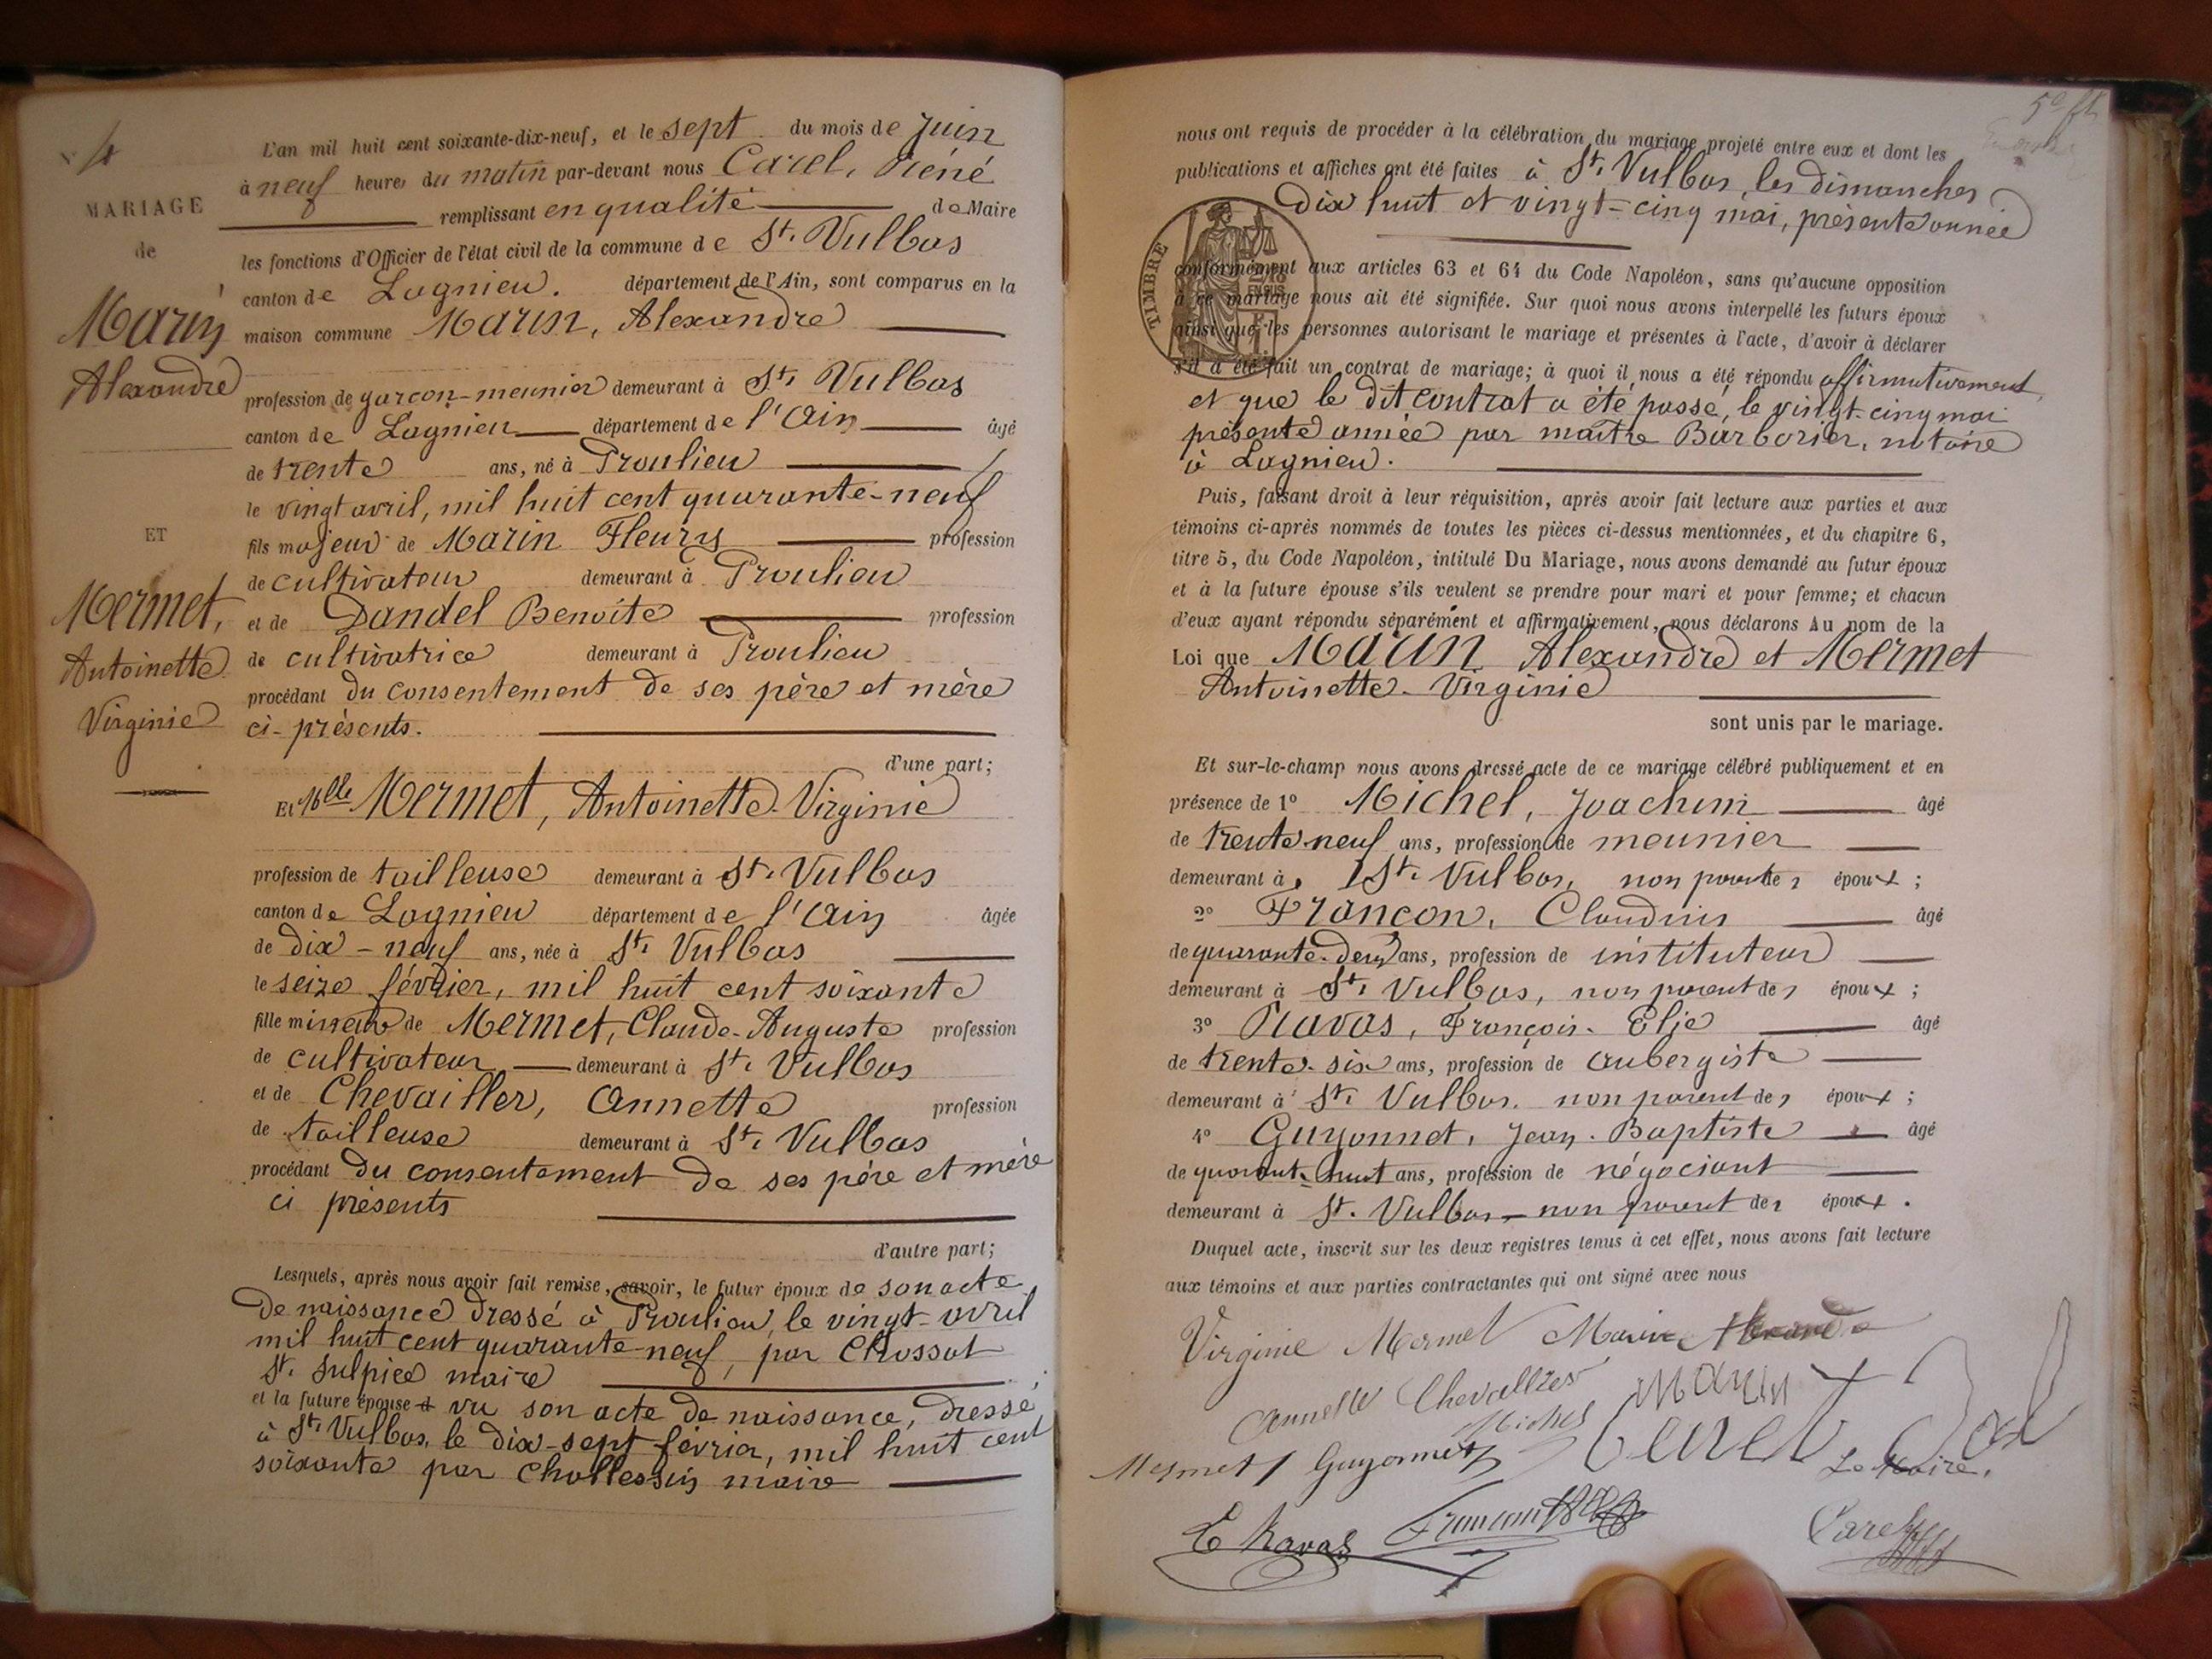 N° 4
MARIAGE
de
Marin
Alexandre
ET
Mermet,
Antoinette
Virginie
L'an mil huit cent soixante-dix-neuf, et le sept du mois de Juin
à neuf heures du matin par-devant nous Carel, Réné
remplissant en qualité de Maire
les fonctions d'Officier de l'état civil de la commune de St. Vulbas
canton de Lagnieu. département de l'Ain, sont comparus en la
maison commune Marin, Alexandre
profession de garçon-meunier demeurant à St. Vulbas
canton de Lagnieu département de l'Ain âgé
de trente ans, né à Proulieu
le vingt avril, mil huit cent quarante-neuf
fils majeur de Marin Fleury profession
de cultivateur demeurant à Proulieu
et de Dandel Benoite profession
de cultivatrice demeurant à Proulieu
procédant du consentement de ses père et mère
ci-présents.
d'une part;
Et Mlle Mermet, Antoinette-Virginie
profession de tailleuse demeurant à St. Vulbas
canton de Lagnieu département de l'Ain âgée
de dix-neuf ans, née à St. Vulbas
le seize février, mil huit cent soixante
fille mineure de Mermet, Claude-Auguste profession
de cultivateur demeurant à St. Vulbas
et de Chevailler, Annette profession
de tailleuse demeurant à St. Vulbas
procédant du consentement de ses père et mère
ci présents
d'autre part;
Lesquels, après nous avoir fait remise, savoir, le futur époux de son acte
de naissance dressé à Proulieu, le vingt-avril
mil huit cent quarante-neuf, par Chossat
St. Sulpice maire
et la future épouse vu son acte de naissance, dressé
à St. Vulbas, le dix-sept février, mil huit cent
soixante par Chollessin maire
nous ont requis de procéder à la célébration du mariage projeté entre eux et dont les
publications et affiches ont été faites à St. Vulbas, les dimanches
dix huit et vingt-cinq mai, présente année
TIMBRE
conformément aux articles 63 et 64 du Code Napoléon, sans qu'aucune opposition
à ce mariage nous ait été signifiée. Sur quoi nous avons interpellé les futurs époux
ainsi que les personnes autorisant le mariage et présentes à l'acte, d'avoir à déclarer
s'il a été fait un contrat de mariage; à quoi il nous a été répondu affirmativement,
et que le dit contrat a été passé, le vingt-cinq mai
présente année par maître Barborier, notaire
à Lagnieu.
Puis, faisant droit à leur réquisition, après avoir fait lecture aux parties et aux
témoins ci-après nommés de toutes les pièces ci-dessus mentionnées, et du chapitre 6,
titre 5, du Code Napoléon, intitulé Du Mariage, nous avons demandé au futur époux
et à la future épouse s'ils veulent se prendre pour mari et pour femme; et chacun
d'eux ayant répondu séparément et affirmativement, nous déclarons Au nom de la
Loi que Marin Alexandre et Mermet
Antoinette-Virginie
sont unis par le mariage.
Et sur-le-champ nous avons dressé acte de ce mariage célébré publiquement et en
présence de 1° Michel, Joachim âgé
de trente-neuf ans, profession de meunier
demeurant à St. Vulbas, non parent des époux ;
2° Françon, Claudius âgé
de quarante-deux ans, profession de instituteur
demeurant à St. Vulbas, non parent des époux ;
3° Ravas, François-Elie âgé
de trente-six ans, profession de aubergiste
demeurant à St. Vulbas, non parent des époux ;
4° Guyonnet, Jean-Baptiste âgé
de quarante-huit ans, profession de négociant
demeurant à St. Vulbas, non parent des époux .
Duquel acte, inscrit sur les deux registres tenus à cet effet, nous avons fait lecture
aux témoins et aux parties contractantes qui ont signé avec nous
Virginie Mermet Marin Alexandre
Annette Chevallier Marin
Michel
Mermet Guyonnet
Le Maire,
E Ravas Françon Carel